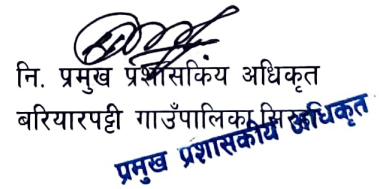 नि. प्रमुख प्रशासकिय अधिकृत
बरियारपट्टी गाउँपालिका
प्रमुख प्रशासकीय अधिकृत